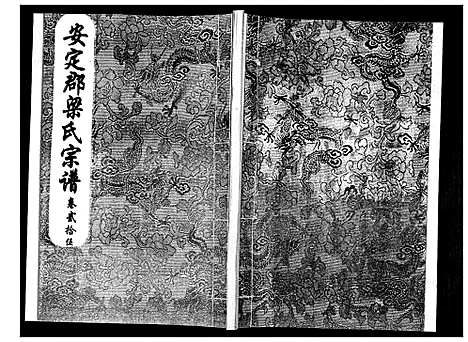 安定郡梁氏宗谱 卷贰拾伍